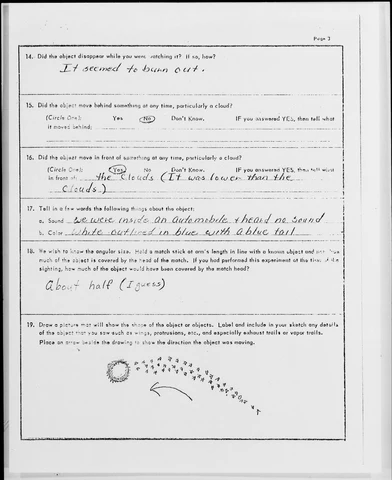 Page 3
14. Did the object disappear while you were watching it? If so, how?
It seemed to burn out.
15. Did the object move behind something at any time, particularly a cloud?
(Circle One): Yes No Don't Know. IF you answered YES, then tell what
it moved behind:
16. Did the object move in front of something at any time, particularly a cloud?
(Circle One): Yes No Don't Know. IF you answered YES, then tell what
in front of: the clouds (It was lower than the
clouds.)
17. Tell in a few words the following things about the object:
a. Sound we were inside an automobile & heard no sound
b. Color white outlined in blue with a blue tail
18. We wish to know the angular size. Hold a match stick at arm's length in line with a known object and note how
much of the object is covered by the head of the match. If you had performed this experiment at the time of the
sighting, how much of the object would have been covered by the match head?
About half (I guess)
19. Draw a picture that will show the shape of the object or objects. Label and include in your sketch any details
of the object that you saw such as wings, protrusions, etc., and especially exhaust trails or vapor trails.
Place an arrow beside the drawing to show the direction the object was moving.